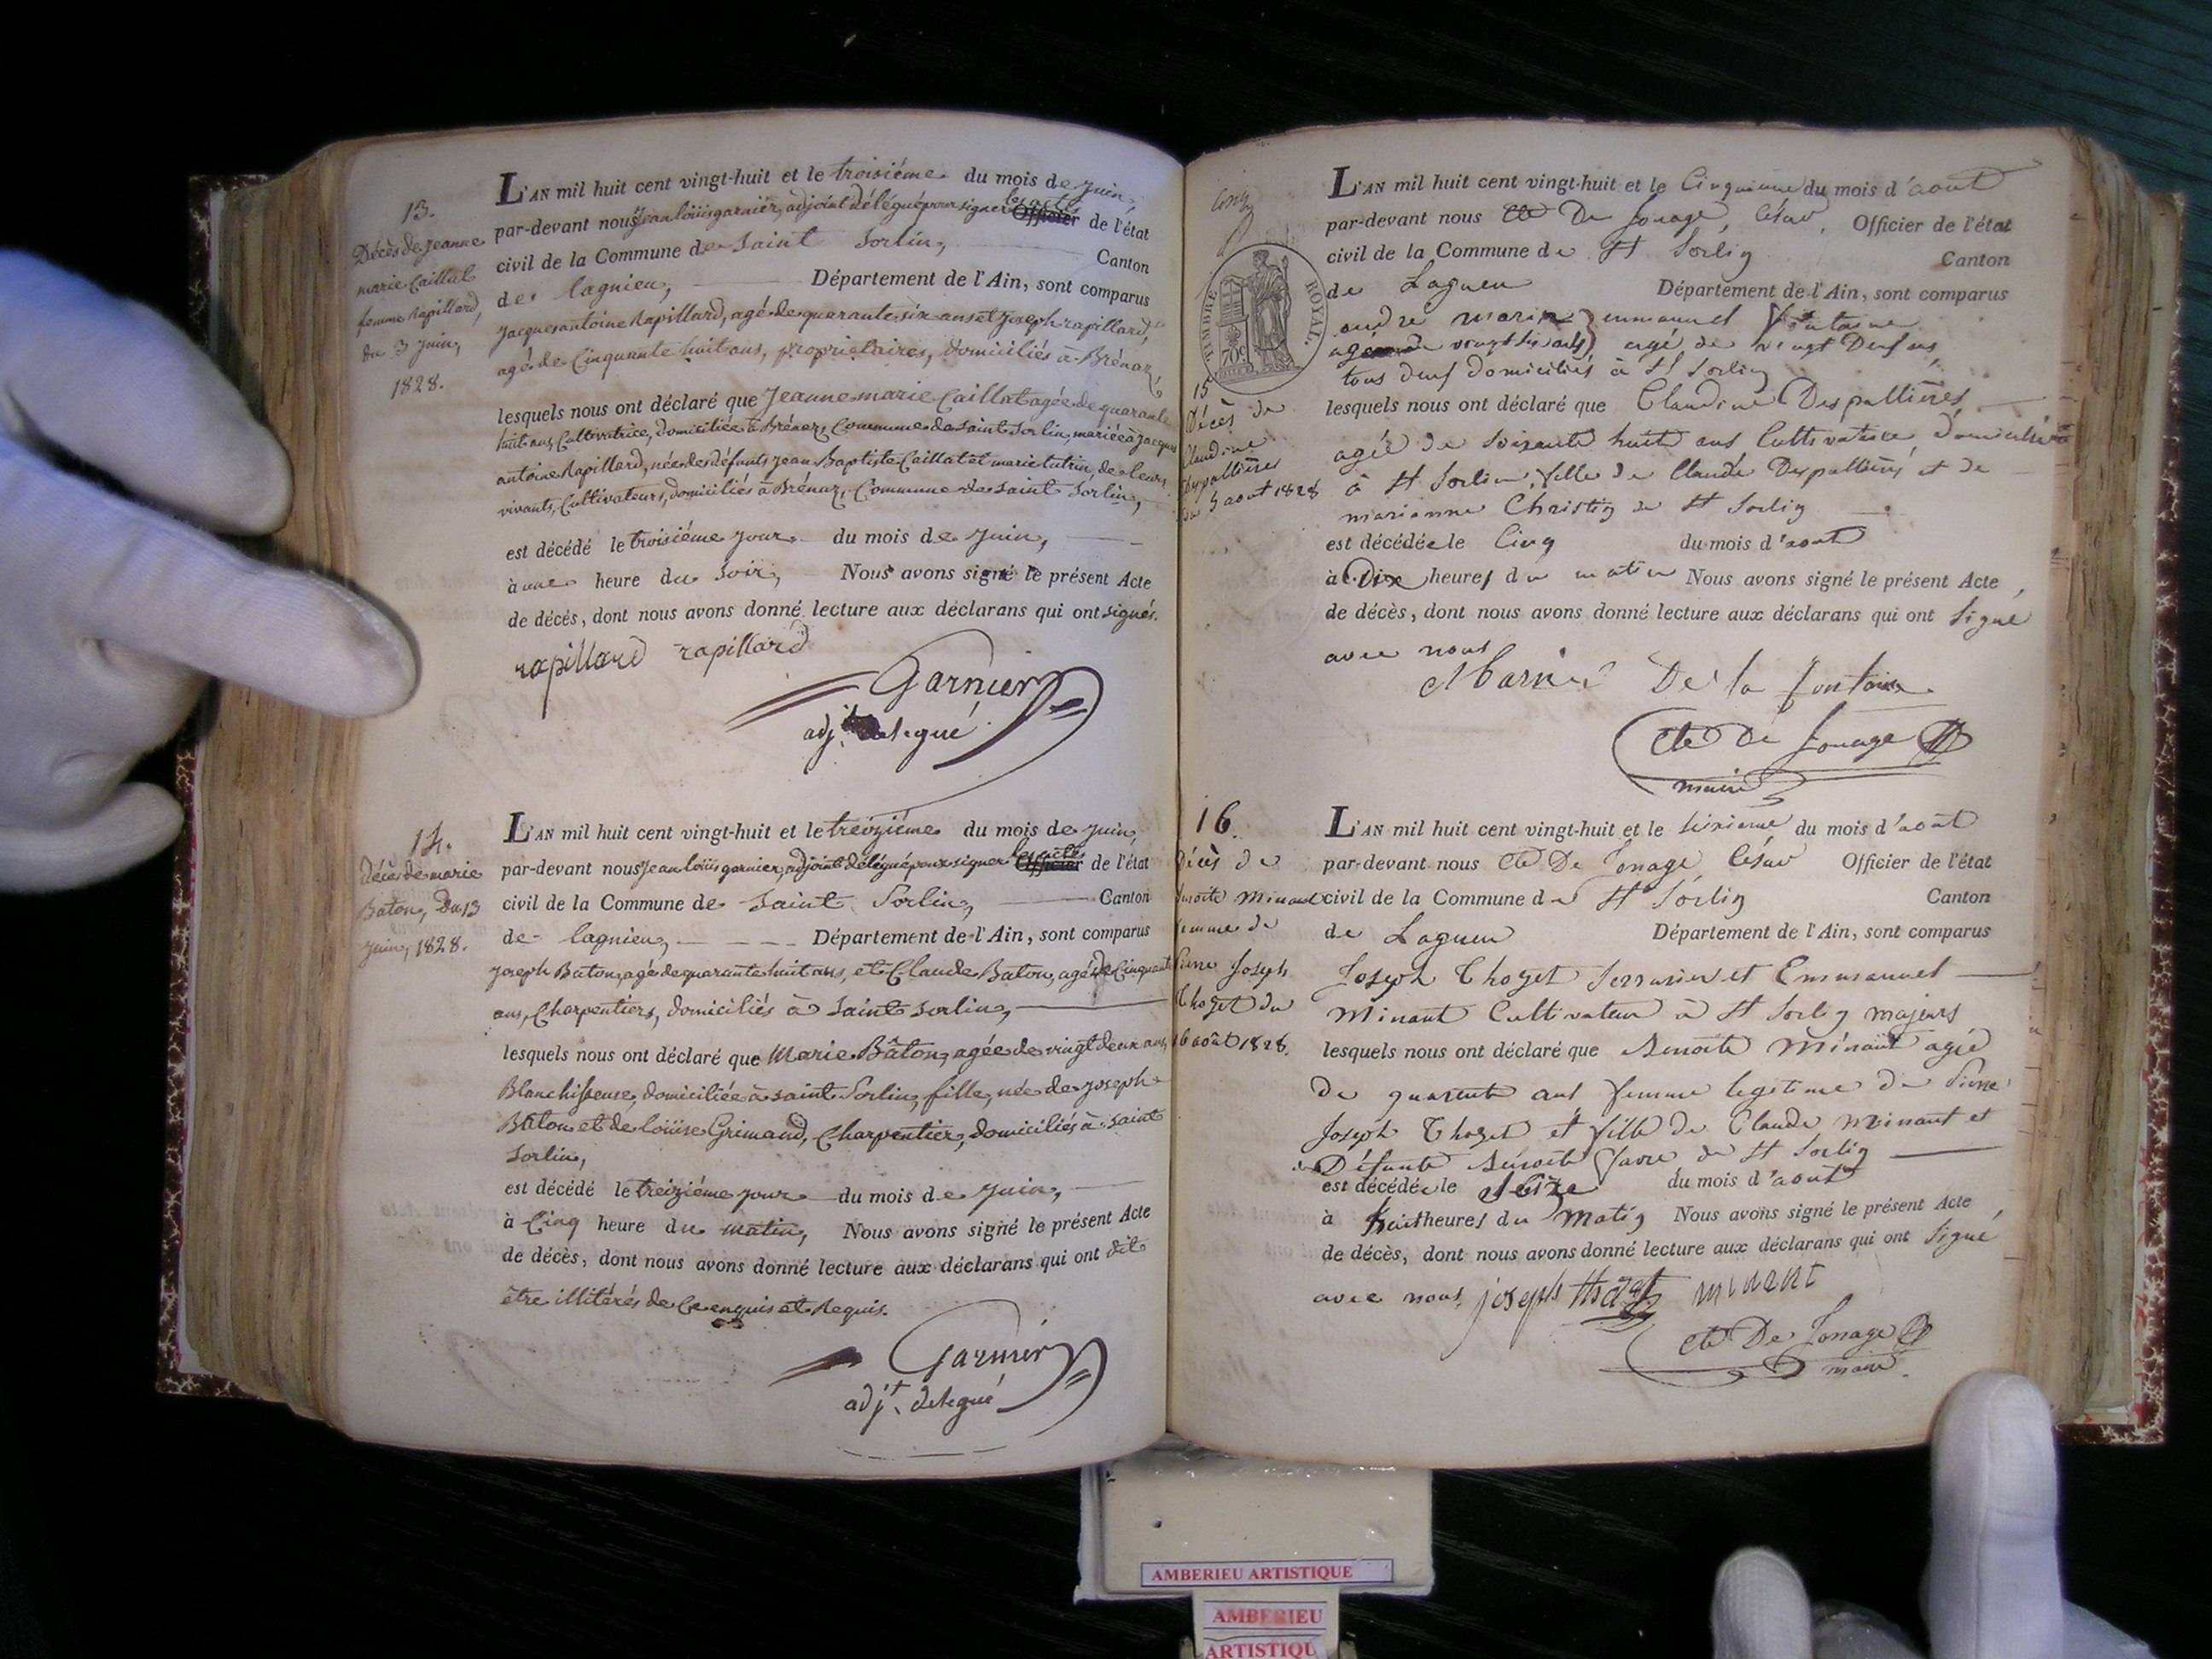 13.
Décès de jeanne
marie Caillat
femme Rapillard,
du 3 juin,
1828.
L'AN mil huit cent vingt-huit et le troisiéme du mois de juin,
par-devant nous jean loüis garnier, adjoint délégué pour signer les actes Officier de l'état
civil de la Commune de Saint Sorlin, Canton
de lagnieu, Département de l'Ain, sont comparus
jacques antoine Rapillard, agé de quarante six ans et joseph rapillard,
agé de Cinquante huit ans, propriétaires, domiciliés à Brénaz,
lesquels nous ont déclaré que Jeanne marie Caillat agée de quarante
huit ans, Cultivatrice, domiciliée à Brénaz, Commune de Saint Sorlin, mariée à jacques
antoine Rapillard, née des défunts jean Baptiste Caillat et marie tutrin, de leurs
vivants, Cultivateurs, domiciliés à Brénaz, Commune de Saint Sorlin,
est décédé le troisiéme jour du mois de juin,
à une heure du soir, Nous avons signé le présent Acte
de décès, dont nous avons donné lecture aux déclarans qui ont signés.
rapillard rapillard
Garnier
adj.t delegué
14.
décès de marie
Baton, Du 13
juin, 1828.
L'AN mil huit cent vingt-huit et le treiziéme du mois de juin,
par-devant nous jean loüis garnier, adjoint délégué pour signer les actes Officier de l'état
civil de la Commune de Saint Sorlin, Canton
de lagnieu, Département de l'Ain, sont comparus
joseph Baton, agé de quarante huit ans, et Claude Baton, agé de Cinquante
ans, Charpentiers, domiciliés à Saint Sorlin,
lesquels nous ont déclaré que Marie Bâton, agée de vingt deux ans,
Blanchisseuse, domiciliée à saint Sorlin, fille, née de joseph
Bâton et de loüise Grimand, Charpentier, domiciliés à saint
Sorlin,
est décédé le treiziéme jour du mois de juin,
à Cinq heure du matin, Nous avons signé le présent Acte
de décès, dont nous avons donné lecture aux déclarans qui ont dit
être illitérés de ce enquis et Requis.
Garnier
adj.t delegué
cinq
TIMBRE ROYAL.
70c
15
Décès de
Claudine
Despallières
du 5 aout 1828
L'AN mil huit cent vingt-huit et le Cinquieme du mois d'aout
par-devant nous Cte De Jonage, César, Officier de l'état
civil de la Commune de St Sorlin Canton
de Lagnieu Département de l'Ain, sont comparus
andre marin emmanuel fontaine
age de vingt six ans agé de vingt Deux ans
tous deux domiciliés à St Sorlin
lesquels nous ont déclaré que Claudine Despallières
agée de soixante huit ans Cultivatrice domiciliée
à St Sorlin, fille de Claude Despallières et de
marianne Christin de St Sorlin
est décédée le Cinq du mois d'aout
à Dix heures du matin Nous avons signé le présent Acte,
de décès, dont nous avons donné lecture aux déclarans qui ont signé
avec nous
De la fontaine
Cte De Jonage
maire
16.
Décès de
benoite Minant
femme de
Pierre Joseph
Thozet du
16 août 1828.
L'AN mil huit cent vingt-huit et le sixieme du mois d'août
par-devant nous Cte De Jonage César Officier de l'état
civil de la Commune de St Sorlin Canton
de Lagnieu Département de l'Ain, sont comparus
Joseph Thozet Serrurier et Emmanuel
Minant Cultivateur à St Sorlin majeurs
lesquels nous ont déclaré que Benoite Minant agée
de quarente ans femme legitime de Pierre
Joseph Thozet et fille de Claude Minant et
de Défunte Benoite favre de St Sorlin
est décédée le Seize du mois d'aout
à huit heures du Matin Nous avons signé le présent Acte
de décès, dont nous avons donné lecture aux déclarans qui ont signé
avec nous. joseph thozet minant
Cte De Jonage
maire.
AMBERIEU ARTISTIQUE
AMBERIEU
ARTISTIQU